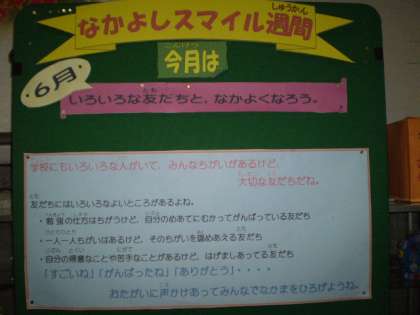 なかよしスマイル週間
今月は
6月
いろいろな友だちと、なかよくなろう。
学校にもいろいろな人がいて、みんなちがいがあるけど、
大切な友だちだね。
友だちにはいろいろなよいところがあるよね。
・勉強の仕方はちがうけど、自分のめあてにむかってがんばっている友だち
・一人一人ちがいはあるけど、そのちがいを認めあえる友だち
・自分の得意なことや苦手なことがあるけど、はげましあってる友だち
「すごいね」「がんばったね」「ありがとう」・・・・
おたがいに声かけあってみんなでなかまをひろげようね。